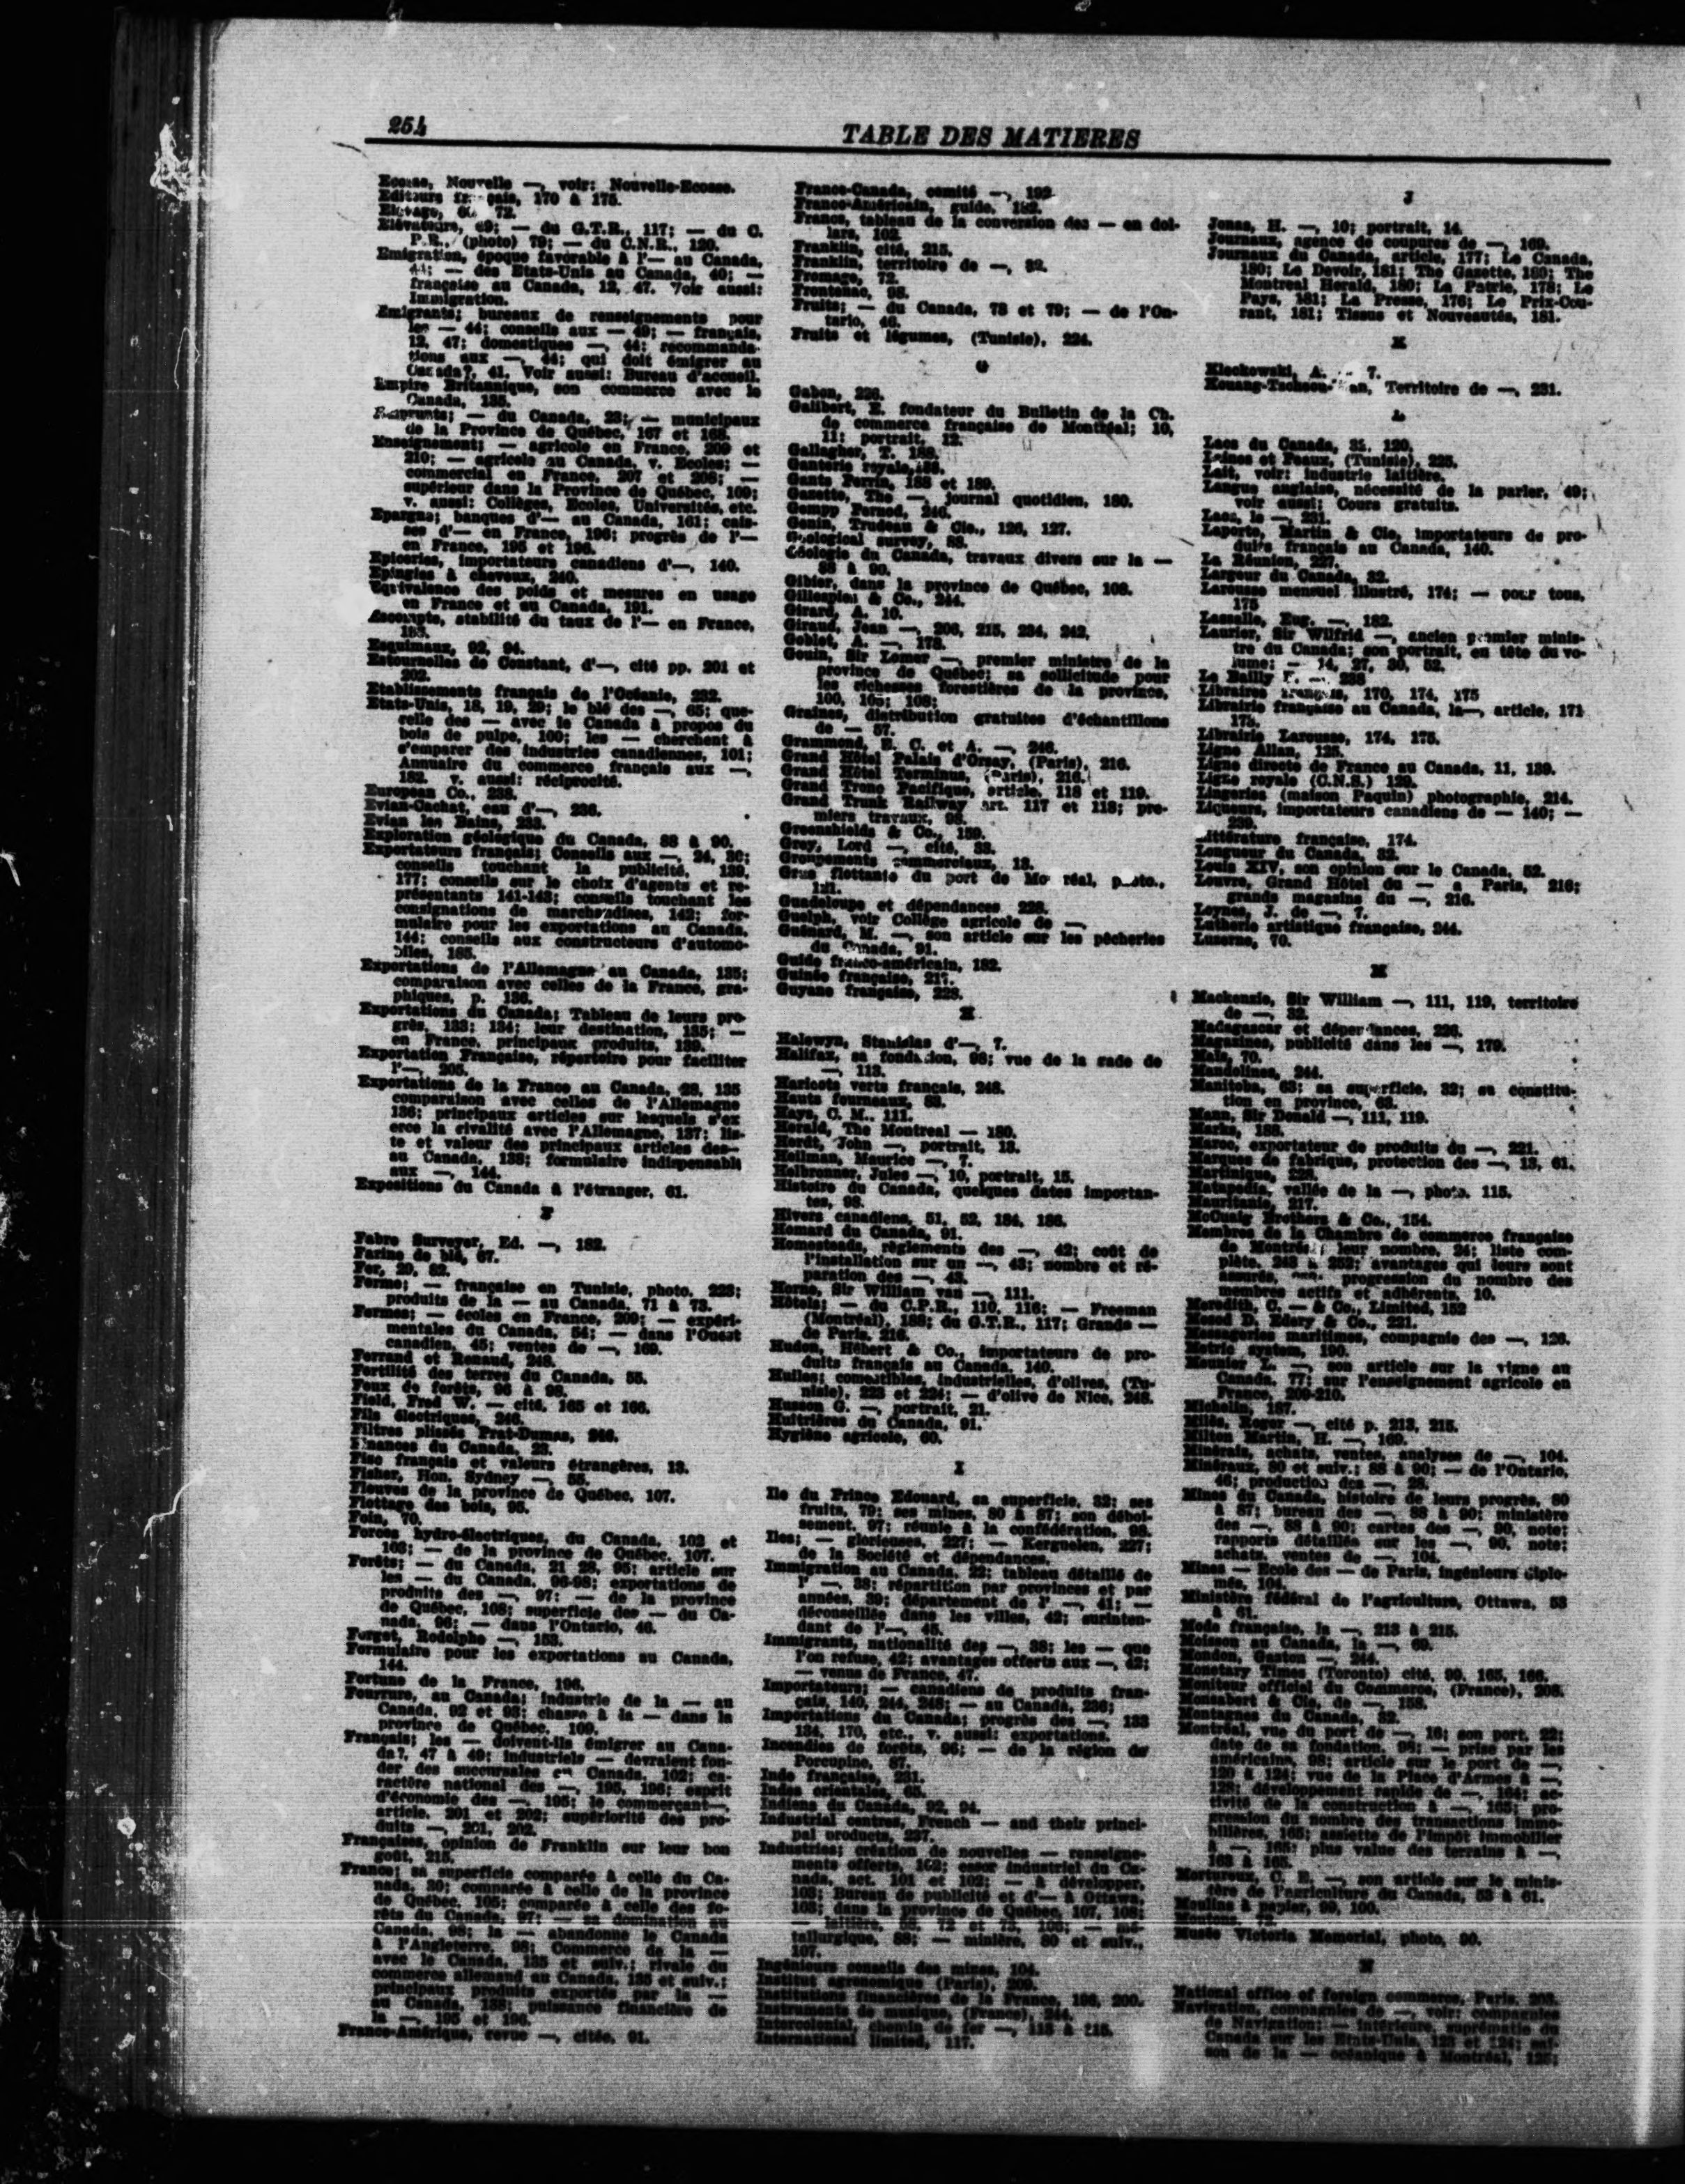 254
TABLE DES MATIERES
Ecosse, Nouvelle —, voir: Nouvelle-Ecosse.
Editeurs français, 170 à 175.
Elevage, 72.
Elévateurs, 69; — du G.T.R., 117; — du C.
P.R., (photo) 79; — du C.N.R., 120.
Emigration, époque favorable à l'— au Canada,
44; — des Etats-Unis au Canada, 40; —
française au Canada, 12, 47. Voir aussi:
Immigration.
Emigrants; bureaux de renseignements pour
les — 44; conseils aux — 49; — français,
12, 47; domestiques —, 44; recommanda-
tions aux —, 44; qui doit émigrer au
Canada?, 41. Voir aussi: Bureau d'accueil.
Empire Britannique, son commerce avec le
Canada, 135.
Emprunts; — du Canada, 23; — municipaux
de la Province de Québec, 167 et 168.
Enseignement; — agricole en France, 209 et
210; — agricole au Canada, v. Ecoles; —
commercial en France, 207 et 208; —
supérieur dans la Province de Québec, 109;
v. aussi: Collèges, Ecoles, Universités, etc.
Epargne; banques d'— au Canada, 161; cais-
ses d'— en France, 196; progrès de l'—
en France, 195 et 196.
Epiceries, importateurs canadiens d'—, 140.
Epingles à cheveux, 240.
Equivalence des poids et mesures en usage
en France et au Canada, 191.
Escompte, stabilité du taux de l'— en France,
Esquimaux, 92, 94.
Estournelles de Constant, d'—, cité pp. 201 et
202.
Etablissements français de l'Océanie, 232.
Etats-Unis, 18, 19, 20; le blé des —, 65; que-
relle des — avec le Canada à propos du
bois de pulpe, 100; les — cherchent à
s'emparer des industries canadiennes, 101;
Annuaire du commerce français aux —,
182. v. aussi: réciprocité.
European Co., 238.
Evian-Cachat, eau d'—, 236.
Evian les Bains, 233.
Exploration géologique du Canada, 88 à 90.
Exportateurs français; Conseils aux —, 24,
conseils touchant la publicité, 139,
177; conseils sur le choix d'agents et re-
présentants 141-143; conseils touchant les
consignations de marchandises, 142; for-
mulaire pour les exportations au Canada,
144; conseils aux constructeurs d'automo-
biles, 185.
Exportations de l'Allemagne au Canada, 135;
comparaison avec celles de la France, gra-
phiques, p. 136.
Exportations du Canada; Tableau de leurs pro-
grès, 133; 134; leur destination, 135; —
en France, principaux produits, 139.
Exportation Française, répertoire pour faciliter
l'—, 205.
Exportations de la France au Canada, 28, 135
comparaison avec celles de l'Allemagne
136; principaux articles sur lesquels s'ex
erce la rivalité avec l'Allemagne, 137; lis-
te et valeur des principaux articles des—
au Canada, 138; formulaire indispensable
aux —, 144.
Expositions du Canada à l'étranger, 61.
F
Fabre Surveyer, Ed. —, 182.
Farine de blé, 67.
Fer, 29, 82.
Ferme; — française en Tunisie, photo, 223;
produits de la — au Canada, 71 à 73.
Fermes; — écoles en France, 209; — expéri-
mentales du Canada, 54; — dans l'Ouest
canadien, 45; ventes de —, 169.
Ferrand et Renaud, 248.
Fertilité des terres du Canada, 55.
Feux de forêts, 96 à 98.
Field, Fred W. — cité, 165 et 166.
Fils électriques, 246.
Filtres plissés Prat-Dumas, 246.
Finances du Canada, 23.
Fisc français et valeurs étrangères, 13.
Fisher, Hon. Sydney —, 55.
Fleuves de la province de Québec, 107.
Flottage des bois, 95.
Foin, 70.
Forces hydro-électriques, du Canada, 102 et
103; — de la province de Québec, 107.
Forêts; — du Canada, 21 28, 95; article sur
les — du Canada, 96-98; exportations de
produits des —, 97; — de la province
de Québec, 108; superficie des — du Ca-
nada, 96; — dans l'Ontario, 46.
Forget, Rodolphe —, 153.
Formulaire pour les exportations au Canada,
144.
Fortune de la France, 196.
Fourrure, au Canada; industrie de la — au
Canada, 92 et 93; chasse à la — dans la
province de Québec, 109.
Français; les — doivent-ils émigrer au Cana-
da?, 47 à 49; industriels — devraient fon-
der des succursales en Canada, 102; ca-
ractère national des —, 195, 196; esprit
d'économie des —, 195; le commerçant —,
article, 201 et 202; supériorité des pro-
duits —, 201, 202.
Françaises, opinion de Franklin sur leur bon
goût, 215.
France; sa superficie comparée à celle du Ca-
nada, 30; comparée à celle de la province
de Québec, 105; comparée à celle des fo-
rêts du Canada, 97; — sa domination au
Canada, 98; la — abandonne le Canada
à l'Angleterre, 98; Commerce de la —
avec le Canada, 135 et suiv.; rivale du
commerce allemand au Canada, 135 et suiv.;
principaux produits exportés par la —
au Canada, 138; puissance financière de
la —, 195 et 196.
France-Amérique, revue —, citée, 91.
France-Canada, comité —, 192.
Franco-Américain, guide, 182.
Francs, tableau de la conversion des — en dol-
lars, 192.
Franklin, cité, 215.
Franklin, territoire de —, 32.
Fromage, 72.
Frontenac, 98.
Fruits; — du Canada, 78 et 79; — de l'On-
tario, 46.
Fruits et légumes, (Tunisie), 224.
G
Gabon, 226.
Galibert, E. fondateur du Bulletin de la Ch.
de commerce française de Montréal; 10,
11; portrait, 12.
Gallagher, T. 188.
Ganterie royale, 188.
Gants Perrin, 188 et 189.
Gazette, The —, journal quotidien, 180.
Gempp Pernod, 246.
Genin, Trudeau & Cie., 126, 127.
Geological survey, 88.
Géologie du Canada, travaux divers sur la —
88 à 90.
Gibier, dans la province de Québec, 108.
Gillespies & Co., 244.
Girard, A. 10.
Giraud, Jean —, 206, 215, 234, 242.
Goblet, A. —, 178.
Gouin, Sir Lomer —, premier ministre de la
province de Québec; sa sollicitude pour
les richesses forestières de la province,
100, 105; 108;
Graines, distribution gratuites d'échantillons
de — 57.
Grammond, E. C. et A. —, 246.
Grand Hôtel Palais d'Orsay, (Paris), 216.
Grand Hôtel Terminus, (Paris), 216.
Grand Tronc Pacifique, article, 118 et 119.
Grand Trunk Railway art. 117 et 118; pre-
miers travaux, 98.
Greenshields & Co., 159.
Grey, Lord —, cité, 33.
Groupements commerciaux, 13.
Grue flottante du port de Montréal, photo.,
121.
Guadeloupe et dépendances 228.
Guelph, voir Collège agricole de —,
Guénard, M. —, son article sur les pêcheries
du Canada, 91.
Guide franco-américain, 182.
Guinée française, 217.
Guyane française, 228.
H
Halewyn, Stanislas d'—, 7.
Halifax, sa fondation, 98; vue de la rade de
—, 113.
Haricots verts français, 248.
Hauts fourneaux, 83.
Hays, C. M., 111.
Herald, The Montreal — 180.
Herdt, John —, portrait, 13.
Heilman, Maurice —, 7.
Helbronner, Jules —, 10, portrait, 15.
Histoire du Canada, quelques dates importan-
tes, 98.
Hivers canadiens, 51, 52, 184, 186.
Homard du Canada, 91.
Homesteads, règlements des —, 42; coût de
l'installation sur un —, 43; nombre et ré-
paration des —, 43.
Horne, Sir William van —, 111.
Hôtels; — du C.P.R., 110, 116; — Freeman
(Montréal), 188; du G.T.R., 117; Grands —
de Paris, 216.
Hudon, Hébert & Co., importateurs de pro-
duits français au Canada, 140.
Huiles; comestibles, industrielles, d'olives, (Tu-
nisie), 223 et 224; — d'olive de Nice, 248.
Husson G. —, portrait, 21.
Huîtrières du Canada, 91.
Hygiène agricole, 60.
I
Ile du Prince Edouard, sa superficie, 32; ses
fruits, 79; ses mines, 80 à 87; son déboi-
sement, 97; réunie à la confédération, 98.
Iles; — glorieuses, 227; — Kerguelen, 227;
de la Société et dépendances.
Immigration au Canada, 22; tableau détaillé de
l' —, 38; répartition par provinces et par
années, 39; département de l' —, 41; —
déconseillée dans les villes, 42; surinten-
dant de l'—, 45.
Immigrants, nationalité des —, 38; les — que
l'on refuse, 42; avantages offerts aux —, 42;
— venus de France, 47.
Importateurs; — canadiens de produits fran-
çais, 140, 244, 248; — au Canada, 236;
Importations du Canada; progrès des —, 133
134, 170, etc., v. aussi: exportations.
Incendies de forêts, 96; — de la région de
Porcupine, 87.
Inde française, 231.
Indes orientales, 65.
Indiens du Canada, 92, 94.
Industrial centres, French — and their princi-
pal products, 237.
Industries; création de nouvelles — renseigne-
ments offerts, 102; essor industriel du Ca-
nada, act. 101 et 102; — à développer,
103; Bureau de publicité et d'— à Ottawa,
103; dans la province de Québec, 107, 108;
— laitière, 58, 72 et 73, 108; — mé-
tallurgique, 88; — minière, 80 et suiv.,
107.
Ingénieurs conseils des mines, 104.
Institut agronomique (Paris), 209.
Institutions financières de la France, 196, 200.
Instruments de musique, (France), 244.
Intercolonial, chemin de fer —, 113 à 115.
International limited, 117.
J
Jonas, H. —, 10; portrait, 14.
Journaux, agence de coupures de —, 169.
Journaux du Canada, article, 177; Le Canada,
180; Le Devoir, 181; The Gazette, 180; The
Montreal Herald, 180; La Patrie, 178; Le
Pays, 181; La Presse, 176; Le Prix-Cou-
rant, 181; Tissus et Nouveautés, 181.
K
Kleckowski, A. — 7.
Kouang-Tscheou-Wan, Territoire de —, 231.
L
Lacs du Canada, 31, 120.
Laines et Peaux, (Tunisie), 225.
Lait, voir: industrie laitière.
Langue anglaise, nécessité de la parler, 49;
voir aussi; Cours gratuits.
Laos, le —, 231.
Laporte, Martin & Cie, importateurs de pro-
duits français au Canada, 140.
La Réunion, 227.
Largeur du Canada, 32.
Larousse mensuel illustré, 174; — pour tous,
175
Lassalle, Eug. —, 182.
Laurier, Sir Wilfrid —, ancien premier minis-
tre du Canada; son portrait, en tête du vo-
lume; — 14, 27, 30, 52.
Le Bailly — 238
Libraires français, 170, 174, 175
Librairie française au Canada, la—, article, 171
175.
Librairie Larousse, 174, 175.
Ligne Allan, 125.
Ligne directe de France au Canada, 11, 139.
Ligne royale (C.N.S.) 129.
Lingeries (maison Paquin) photographie, 214.
Liqueurs, importateurs canadiens de — 140; —
239.
Littérature française, 174.
Longueur du Canada, 32.
Louis XIV, son opinion sur le Canada, 52.
Louvre, Grand Hôtel du — à Paris, 216;
grands magasins du —, 216.
Loynes, J. de —, 7.
Lutherie artistique française, 244.
Luzerne, 70.
M
Mackenzie, Sir William —, 111, 119, territoire
de —, 32.
Madagascar et dépendances, 226.
Magazines, publicité dans les —, 179.
Maïs, 70.
Mandolines, 244.
Manitoba, 63; sa superficie, 32; sa constitu-
tion en province, 63.
Mann, Sir Donald —, 111, 119.
Marks, 188.
Maroc, exportateur de produits du —, 221.
Marques de fabrique, protection des —, 13, 61.
Martinique,
Matapedia, vallée de la —, photo, 115.
Mauritanie, 217.
McCuaig Brothers & Co., 154.
Membres de la Chambre de commerce française
de Montréal; leur nombre, 24; liste com-
plète, 248 à 252; avantages qui leurs sont
assurés, progression du nombre des
membres actifs et adhérents, 10.
Meredith, C. — & Co., Limited, 152
Mesod D. Edery & Co., 221.
Messageries maritimes, compagnie des —, 126.
Metric system, 190.
Meunier L. —, son article sur la vigne au
Canada, 77; sur l'enseignement agricole en
France, 209-210.
Michelin, 187.
Milès, Roger —, cité p. 213, 215.
Milton Martin, H. —, 160.
Minérais, achats, ventes, analyses de —, 104.
Minéraux, 80 et suiv.; 88 à 90; — de l'Ontario,
46; production des —, 28.
Mines du Canada, histoire de leurs progrès, 80
à 87; bureau des — 88 à 90; ministère
des —, 88 à 90; cartes des —, 90, note;
rapports détaillés sur les —, 90, note;
achats, ventes de —, 104.
Mines — Ecole des — de Paris, ingénieurs diplo-
més, 104.
Ministère fédéral de l'agriculture, Ottawa, 53
à 61.
Mode française, la —, 213 à 215.
Moisson au Canada, la —, 69.
Mondon, Gaston —, 244.
Monetary Times (Toronto) cité, 99, 165, 166.
Moniteur officiel du Commerce, (France), 205.
Monsabert & Cie, de —, 158.
Montagnes du Canada, 32.
Montréal, vue du port de —, 16; son port, 22;
date de sa fondation, 98; — prise par les
américains, 98; article sur le port de —,
120 à 124; vue de la Place d'Armes à —,
128; développement rapide de —, 164; ac-
tivité de la construction à —, 165; pro-
gression du nombre des transactions immo-
bilières, 165; assiette de l'impôt immobilier
à —, 165; plus value des terrains à —,
163 à 165.
Mortureux, C. E. —, son article sur le minis-
tère de l'agriculture du Canada, 53 à 61.
Moulins à papier, 99, 100.
Moutons, 72.
Musée Victoria Memorial, photo, 90.
N
National office of foreign commerce, Paris, 205.
Navigation, compagnies de —, voir: compagnies
de Navigation; — intérieure, suprématie du
Canada sur les Etats-Unis, 123 et 124; sai-
son de la — océanique à Montréal, 123;